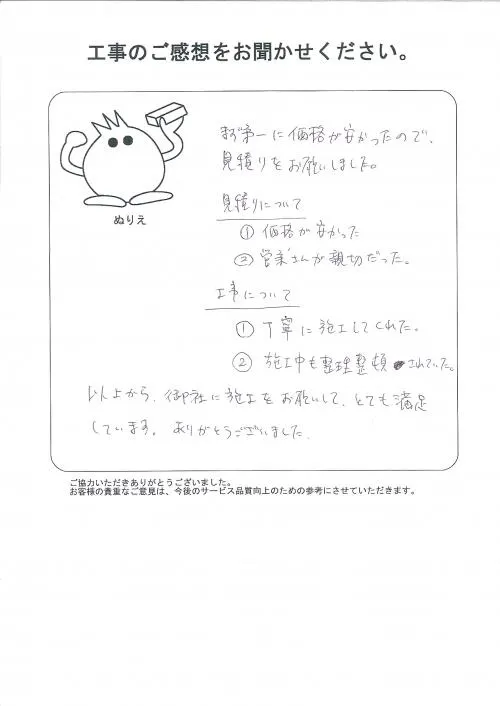 工事のご感想をお聞かせください。
まず第一に価格が安かったので、
見積りをお願いしました。
ぬりえ
見積りについて
① 価格が安かった
② 営業さんが親切だった。
工事について
① 丁寧に施工してくれた。
② 施工中も整理整頓されていた。
以上から、御社に施工をお願いして、とても満足
しています。ありがとうございました。
ご協力いただきありがとうございました。
お客様の貴重なご意見は、今後のサービス品質向上のための参考にさせていただきます。